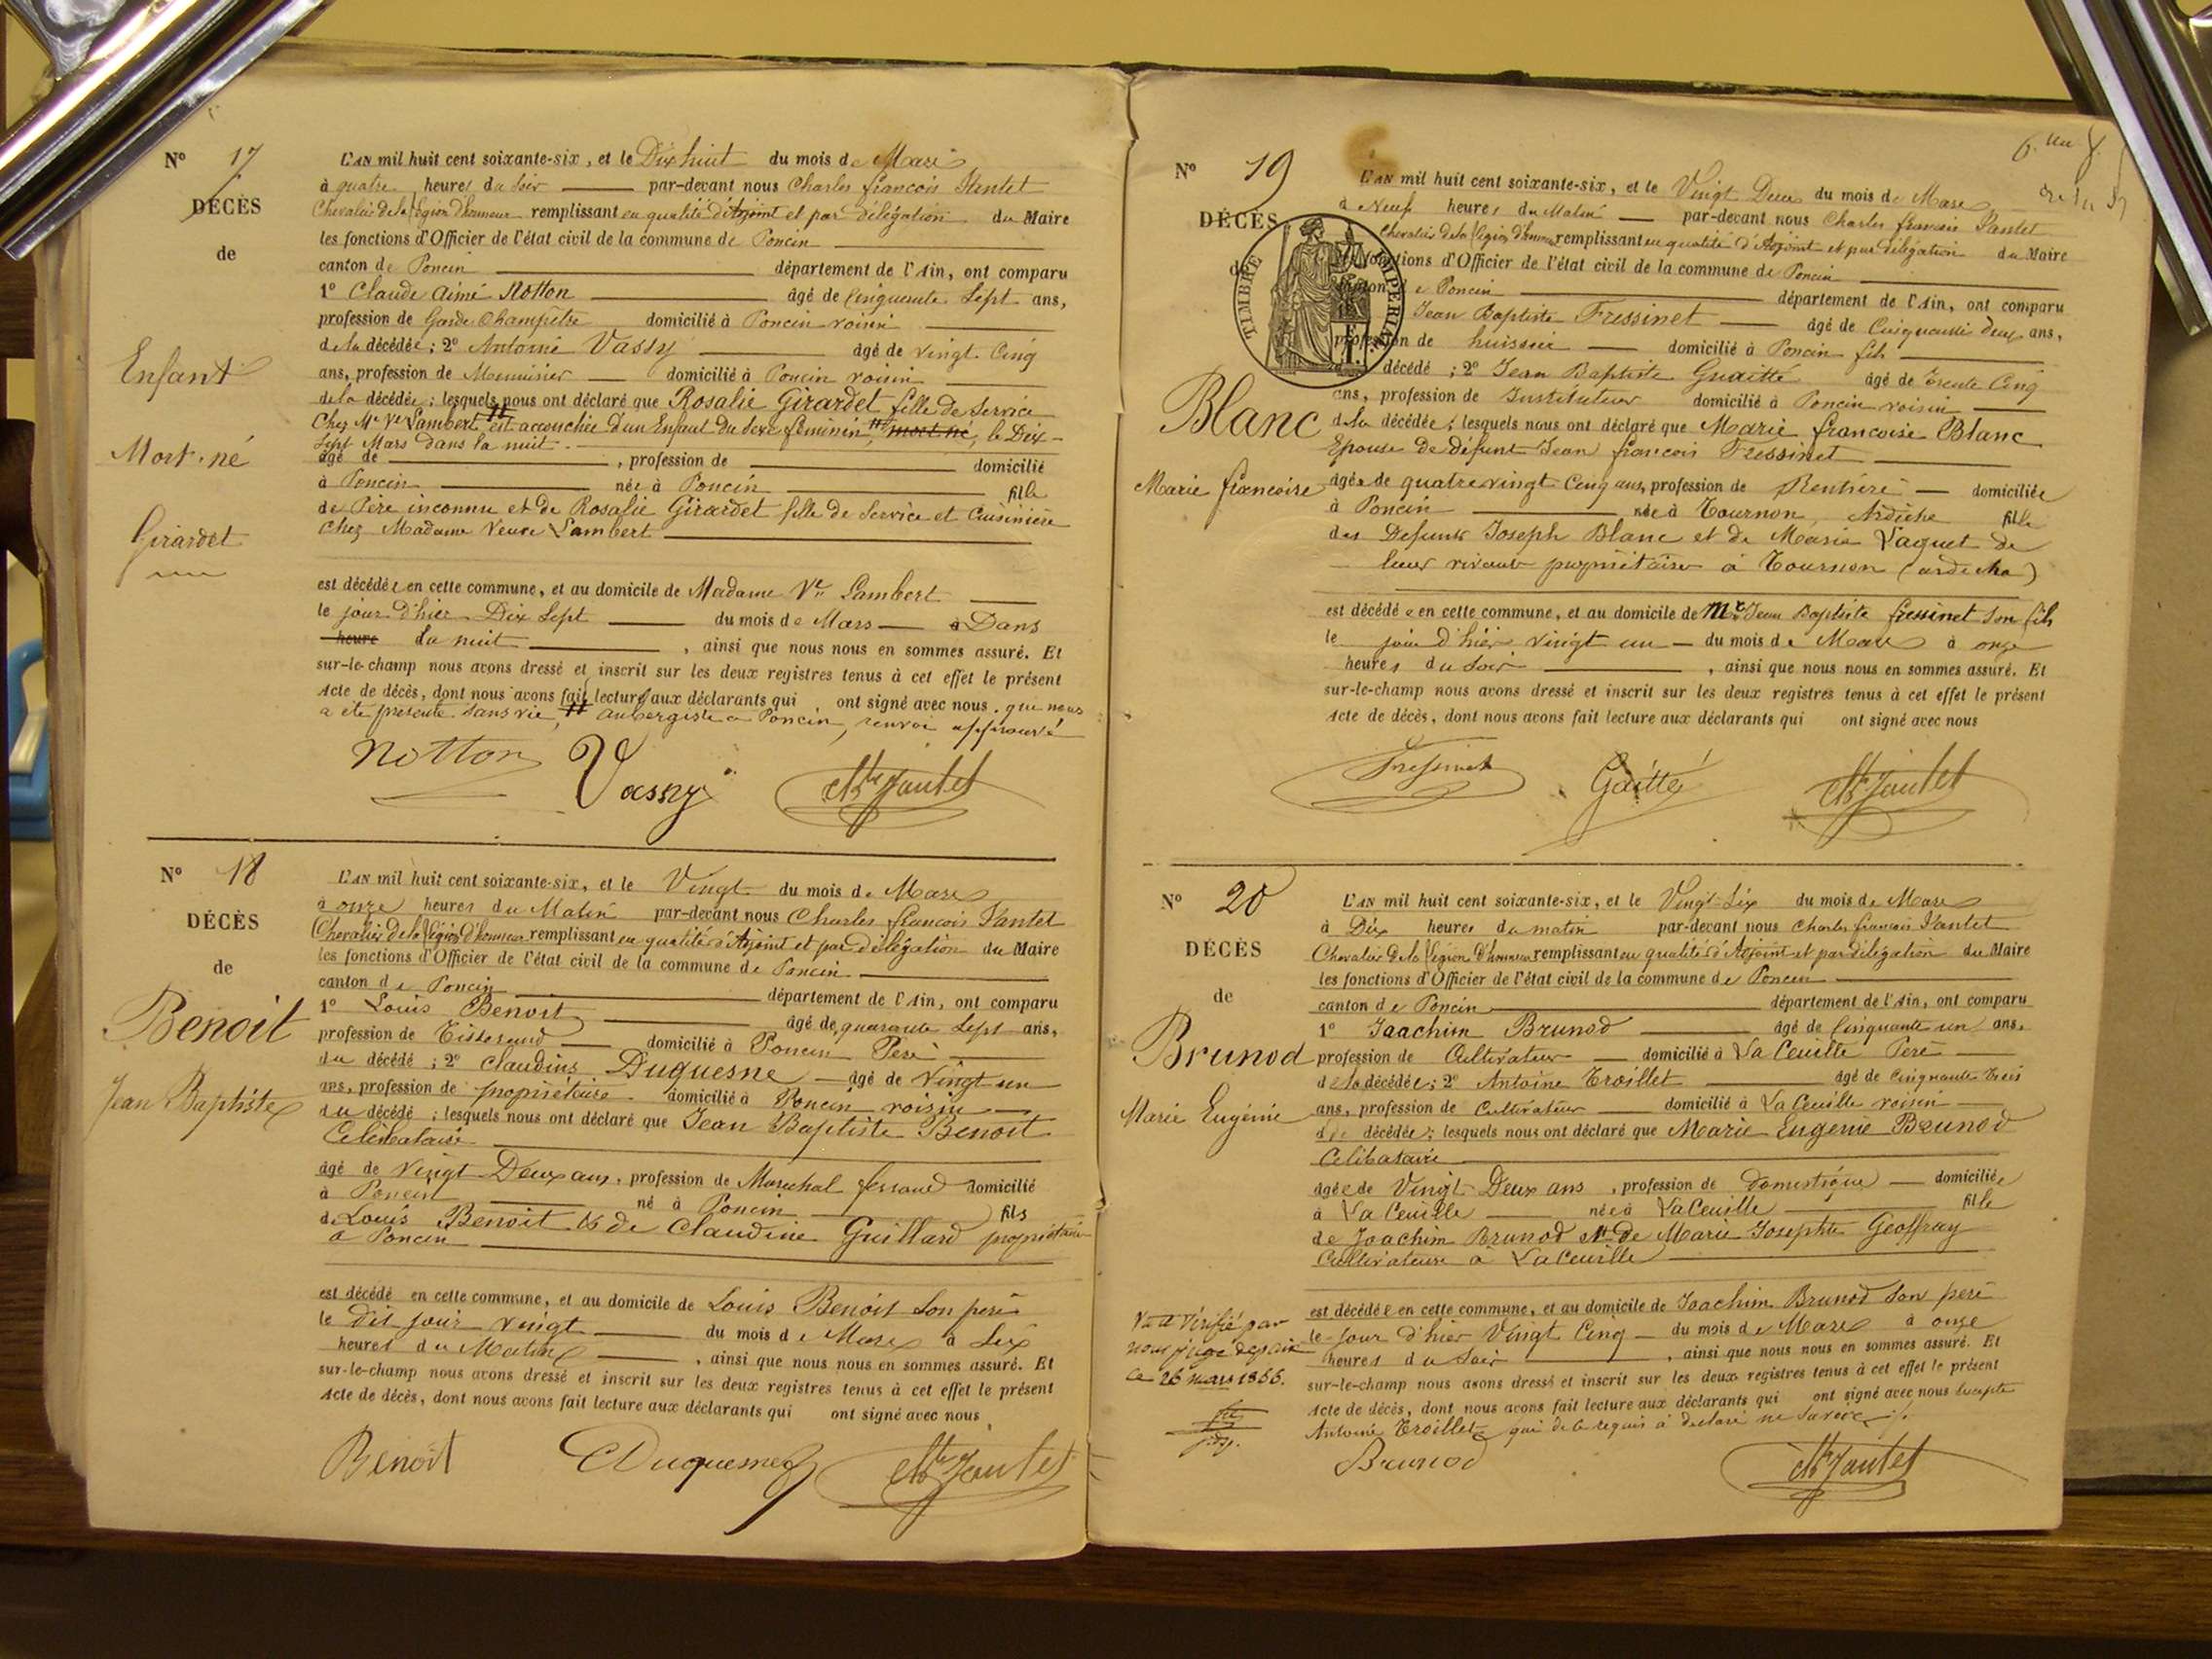 N° 17
DÉCÈS
de
Enfant
Mort-né
Girardet
L'AN mil huit cent soixante-six, et le Dix huit du mois de Mars
à quatre heures du Soir par-devant nous Charles françois Jantet
Chevalier de la légion d'honneur remplissant en qualité d'Adjoint et par délégation du Maire
les fonctions d'Officier de l'état civil de la commune de Poncin
canton de Poncin département de l'Ain, ont comparu
1° Claude Aimé Notton âgé de Cinquante Sept ans,
profession de Garde Champetre domicilié à Poncin voisin
de la décédée ; 2° Antoine Vassy âgé de vingt-Cinq
ans, profession de Menuisier domicilié à Poncin voisin
de la décédée ; lesquels nous ont déclaré que Rosalie Girardet fille de Service
Chez Me Ve Lambert # est accouchée d'un Enfant du Sexe féminin, mort né, le Dix-
Sept Mars dans la nuit
âgé de , profession de domicilié
à Poncin née à Poncin fille
de Père inconnu et de Rosalie Girardet fille de Service et Cuisinière
Chez Madame Veuve Lambert
est décédée en cette commune, et au domicile de Madame Ve Lambert
le jour d'hier Dix Sept du mois de Mars à Dans
heure la nuit , ainsi que nous nous en sommes assuré. Et
sur-le-champ nous avons dressé et inscrit sur les deux registres tenus à cet effet le présent
Acte de décès, dont nous avons fait lecture aux déclarants qui ont signé avec nous. que nous
a été présenté sans vie, # aubergiste a Poncin, renvoi approuvé
Notton Vassy Ch Jantet
N° 18
DÉCÈS
de
Benoit
Jean Baptiste
L'AN mil huit cent soixante-six, et le Vingt du mois de Mars
à onze heures du Matin par-devant nous Charles françois Jantet
Chevalier de la légion d'honneur remplissant en qualité d'Adjoint et par délégation du Maire
les fonctions d'Officier de l'état civil de la commune de Poncin
canton de Poncin département de l'Ain, ont comparu
1° Louis Benoit âgé de quarante Sept ans,
profession de Tisserand domicilié à Poncin Père
du décédé ; 2° Claudius Duquesne âgé de Vingt un
ans, profession de propriétaire domicilié à Poncin voisin
du décédé ; lesquels nous ont déclaré que Jean Baptiste Benoit
Célibataire
âgé de Vingt Deux ans, profession de Marechal ferrand domicilié
à Poncin né à Poncin fils
de Louis Benoit & de Claudine Guillard propriétaire
à Poncin
est décédé en cette commune, et au domicile de Louis Benoit Son père
le dit jour vingt du mois de Mars à Six
heures du Matin , ainsi que nous nous en sommes assuré. Et
sur-le-champ nous avons dressé et inscrit sur les deux registres tenus à cet effet le présent
Acte de décès, dont nous avons fait lecture aux déclarants qui ont signé avec nous
Benoit CDuquesne Ch Jantet
N° 19
DÉCÈS
de
TIMBRE IMPERIAL
Blanc
Marie françoise
L'AN mil huit cent soixante-six, et le Vingt Deux du mois de Mars
à Neuf heures du Matin par-devant nous Charles françois Jantet
Chevalier de la légion d'honneur remplissant en qualité d'Adjoint et par délégation du Maire
les fonctions d'Officier de l'état civil de la commune de Poncin
canton de Poncin département de l'Ain, ont comparu
Jean Baptiste Fressinet âgé de Cinquante deux ans,
profession de huissier domicilié à Poncin fils
décédé ; 2° Jean Baptiste Guaitté âgé de Trente Cinq
ans, profession de Instituteur domicilié à Poncin voisin
de la décédée ; lesquels nous ont déclaré que Marie françoise Blanc
Epouse de defunt Jean françois Fressinet
âgée de quatre vingt Cinq ans, profession de Rentière domiciliée
à Poncin née à Tournon, Ardèche fille
des Defunts Joseph Blanc et de Marie Vaquet de
leur vivant propriétaires à Tournon (ardeche)
est décédée en cette commune, et au domicile de Mr Jean Baptiste fressinet Son fils
le jour d'hier vingt un du mois de Mars à onze
heures du Soir , ainsi que nous nous en sommes assuré. Et
sur-le-champ nous avons dressé et inscrit sur les deux registres tenus à cet effet le présent
Acte de décès, dont nous avons fait lecture aux déclarants qui ont signé avec nous
Fressinet Gaitté Ch Jantet
N° 20
DÉCÈS
de
Brunod
Marie Eugénie
L'AN mil huit cent soixante-six, et le Vingt-Six du mois de Mars
à Dix heures du matin par-devant nous Charles françois Jantet
Chevalier de la légion d'honneur remplissant en qualité d'Adjoint et par délégation du Maire
les fonctions d'Officier de l'état civil de la commune de Poncin
canton de Poncin département de l'Ain, ont comparu
1° Joachim Brunod âgé de Cinquante un ans,
profession de Cultivateur domicilié à La Cueille Père
de la décédée ; 2° Antoine Troillet âgé de Cinquante trois
ans, profession de Cultivateur domicilié à La Cueille voisin
de décédée ; lesquels nous ont déclaré que Marie Eugénie Brunod
Célibataire
âgée de Vingt Deux ans , profession de domestique domiciliée
à La Cueille née à La Cueille fille
de Joachim Brunod et de Marie Josephte Geoffray
Cultivateurs à La Cueille
est décédée en cette commune, et au domicile de Joachim Brunod Son père
le jour d'hier Vingt Cinq du mois de Mars à onze
heures du Soir , ainsi que nous nous en sommes assuré. Et
sur-le-champ nous avons dressé et inscrit sur les deux registres tenus à cet effet le présent
Acte de décès, dont nous avons fait lecture aux déclarants qui ont signé avec nous Excepté
Antoine Troillet qui de ce requis a déclaré ne Savoir
Vu et Vérifié par
nous juge de paix
ce 26 mars 1866.
Brunod Ch Jantet